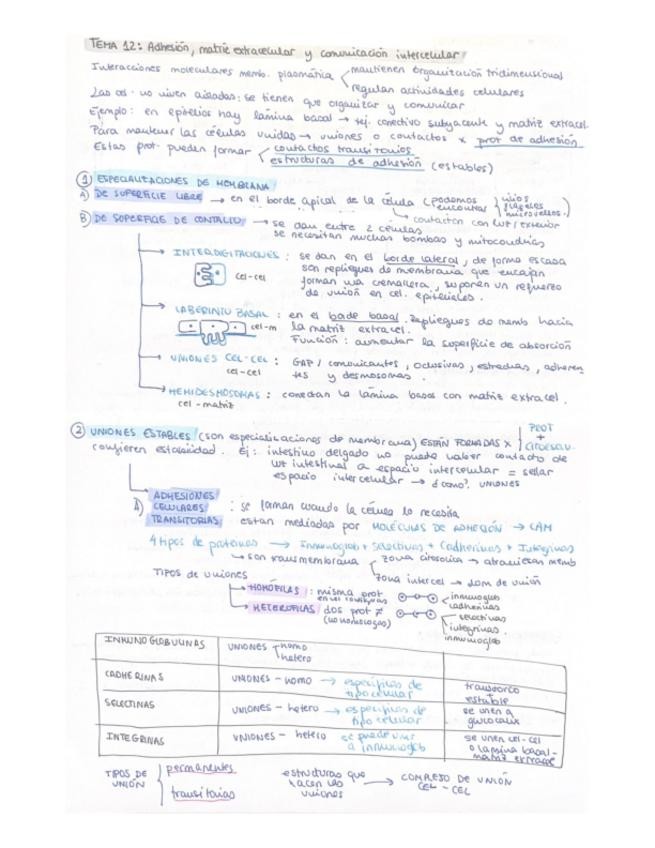 TEMA 12: Adhesión, matriz extracelular y comunicación intercelular
Interacciones moleculares memb. plasmática mantienen organización tridimensional
regulan actividades celulares
Las cel. no viven aisladas: se tienen que organizar y comunicar
Ejemplo: en epitelios hay lámina basal → tej. conectivo subyacente y matriz extracel.
Para mantener las células unidas → uniones o contactos x prot de adhesión
Estas prot. pueden formar contactos transitorios
estructuras de adhesión (estables)
① ESPECIALIZACIONES DE MEMBRANA
A) DE SUPERFICIE LIBRE → en el borde apical de la célula (podemos encontrar cilios flagelos microvellos.)
contactan con luz/exterior
B) DE SUPERFICIE DE CONTACTO → se dan entre 2 células
se necesitan muchas bombas y mitocondrias
INTERDIGITACIONES: se dan en el borde lateral, de forma escasa
cel-cel son repliegues de membrana que encajan
forman una cremallera, suponen un refuerzo
de unión en cel. epiteliales.
LABERINTO BASAL: en el borde basal. Repliegues de memb hacia
cel-m la matriz extracel.
Función: aumentar la superficie de absorción
UNIONES CEL-CEL: GAP/comunicantes, oclusivas, estrechas, adheren
cel-cel tes y desmosomas.
HEMIDESMOSOMAS: conectan la lámina basal con matriz extracel.
cel-matriz
② UNIONES ESTABLES (son especialicaciones de membrana) ESTÁN FORMADAS x PROT + CITOESQU.
confieren estabilidad. Ej: intestino delgado no puede haber contacto de
luz intestinal a espacio intercelular = sellar
espacio intercelular → ¿cómo? UNIONES
A) ADHESIONES CELULARES TRANSITORIAS: se forman cuando la célula lo necesita
están mediadas por MOLÉCULAS DE ADHESIÓN → CAM
4 tipos de proteínas → Inmunoglob + Selectinas + Cadherinas + Integrinas
son transmembrana zona citosólica → atraviesan memb
zona intercel → dom de unión
TIPOS DE UNIONES
HOMÓFILAS: misma prot inmunoglob
cadherinas
HETERÓFILAS dos prot ≠ selectinas
(no homólogas) integrinas
inmunoglob
INMUNOGLOBULINAS UNIONES homo
hetero
CADHERINAS UNIONES - homo → específicas de tipo celular transitorio + estable
SELECTINAS UNIONES - hetero → específicas de tipo celular se unen a glucocálix
INTEGRINAS UNIONES - hetero se puede unir a inmunoglob se unen cel-cel o lámina basal-matriz extracel
TIPOS DE UNIÓN permanentes
transitorias
estructuras que hacen las uniones → COMPLEJO DE UNIÓN CEL-CEL